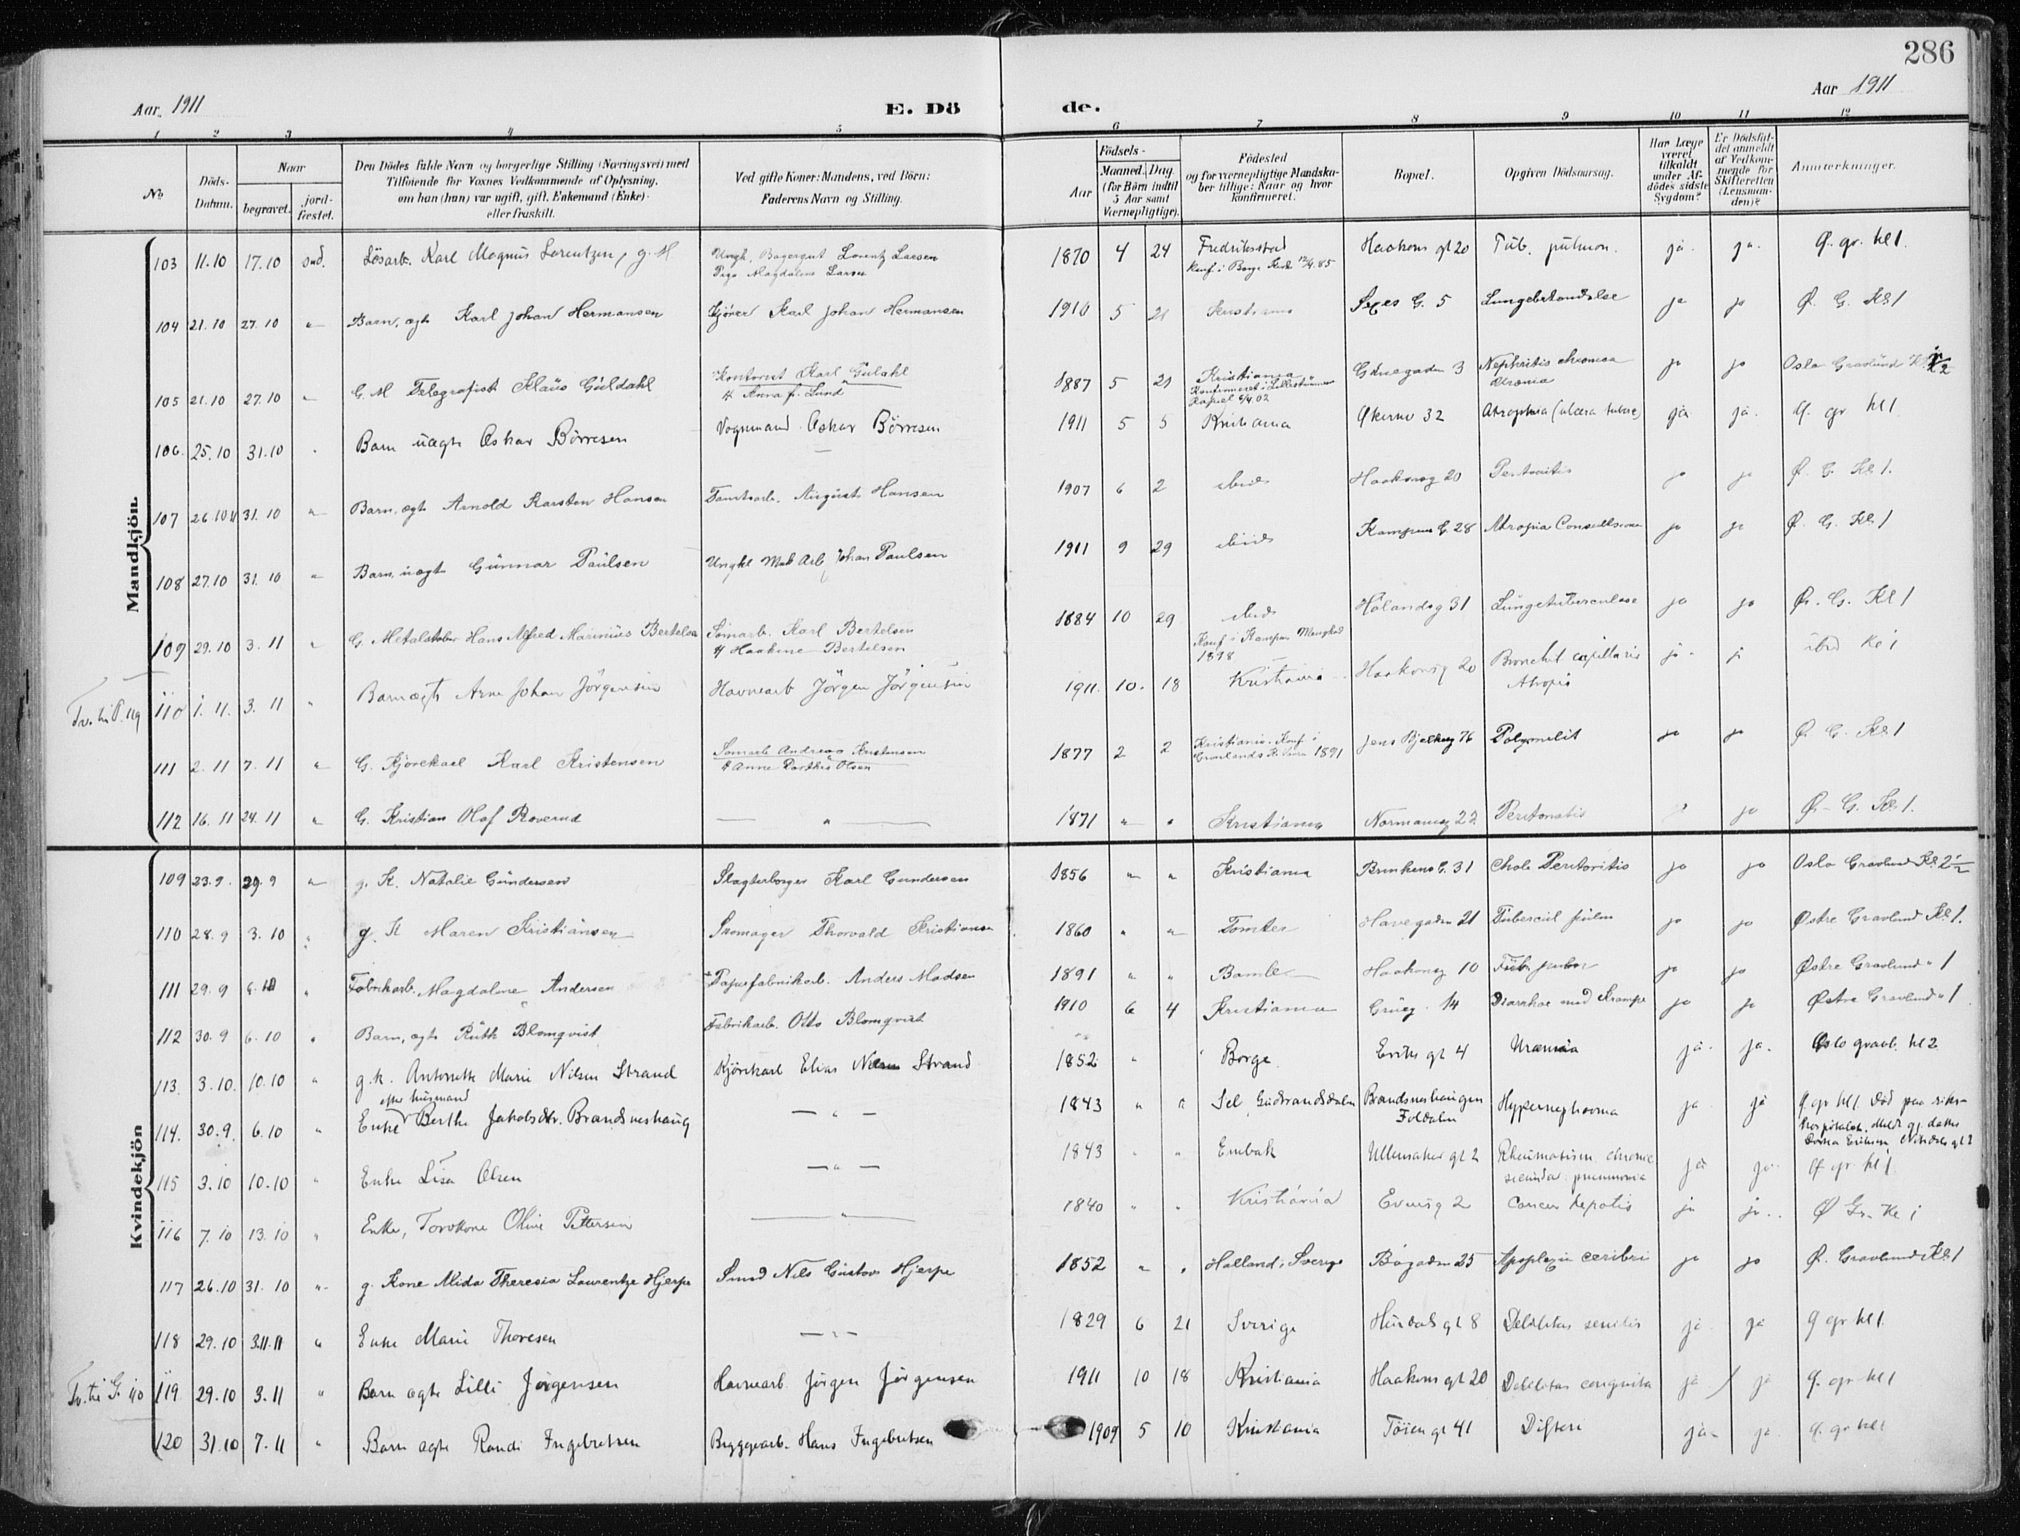 286
Aar 1911
E. Dö de.
Aar 1911
1 2 3 4 5 6 7 8 9 10 11 12
No
Döds-Datum.
Naar
begravet.
jord-fæstet.
Den Dödes fulde Navn og borgerlige Stilling (Næringsvei) med
Tilföiende for Voxnes Vedkommende af Oplysning,
om han (hun) var ugift, gift, Enkemand (Enke)
eller fraskilt.
Ved gifte Koner: Mandens, ved Börn:
Faderens Navn og Stilling.
Födsels-
Aar
Maaned. Dag.
(for Börn indtil
5 Aar samt
Værnepligtige).
Födested
og for værnepligtige Mandska-
ber tillige: Naar og hvor
konfirmeret.
Bopæl.
Opgiven Dödsaarsag.
Har Læge
været
tilkaldt
under Af-
dödes sidste
Sygdom?
Er Dödsfal-
det anmeldt
af Vedkom-
mende for
Skifteretten
(Lensman-
den)?
Anmærkninger.
Mandkjön.
103 11.10 17.10 Lösarb. Karl Magnus Lorentzen, g. M Lorentz Larsen 1870 4 24 Fredriksstad Haakons gt 20 Tub. pulmon. ja ja Ø. gr. kl 1.
Magdalene Larsen Konf. i Borge 85
104 21.10 27.10 " Barn, ægte Karl Johan Hermansen Kjörer Karl Johan Hermansen 1910 5 21 Kristiania G. 5 Lungebetændelse ja ja Ø. G. Kl 1
105 21.10 27.10 " G. M Telegrafist Klaus Guldahl Kontorist Karl Guldahl 1887 5 21 Kristiania 3 Nephritis chronica ja ja Oslo Gravlund
& Anna f. Lund 02 Uræmia
106. 25.10 31.10 " Barn uægte Oskar Börresen Vognmand Oskar Börresen 1911 5 5 Kristiania Økernv 32 Atrophia ja ja Ø. gr kl 1
107 26.10 31.10 " Barn, ægte Arnold Karsten Hansen Tomtearb. August Hansen 1907 6 2 ibid Haakonsg 20 Peritonitis ja ja Ø. G. Kl 1.
108 27.10 31.10 " Barn, uægte Gunnar Paulsen Ungkl Johan Paulsen 1911 9 29 ibid Kampens G. 28 ja ja Ø. G. Kl 1
109 29.10 3.11 " G. Hans Alfred Marinius Bertelsen Karl Bertelsen 1884 10 29 ibid Hölandsg 31 Lungetuberculose ja ja Ø. G. Kl 1
& Haakine Bertelsen Konf. i Kampen Menighed
1898
Tv. til P. 119 110 1.11. 3.11 " Barn ægte Arne Johan Jörgensen Havnearb Jörgen Jörgensen 1911. 10. 18 Kristiania Haakonsg 20 Bronchit capillaris ja ja ibid Kl 1
111 2.11 7.11 " G. Kjörekarl Karl Kristensen Andreas Kristensen 1877 2 2 Kristiania. Konf. i 76 ja ja Ø. G. Kl 1
& Anne Olsen Grönlands 1891
112 16.11 24.11 " G. Kristian Olaf Roverud — " — 1871 " " Kristiania Normannsg 22 Peritonitis ja Ø. G. Kl. 1.
Kvindekjön
109 23.9. 29.9 " g. K. Natalie Gundersen Slagterborger Karl Gundersen 1856 " " Kristiania G. 31 Peritonitis ja ja Oslo Gravlund Kl. 2
110 28.9 3.10 " g. K Maren Kristiansen Skomager Thorvald Kristiansen 1860 " " Tomter Havegaden 21 Tubercul pulm ja ja Østre Gravlund Kl 1.
111 29.9 " Fabrikarb. Magdaline Andersen Papirfabrikarb. Anders Madsen 1891 " " Bamle Haakonsg 10 ja ja Østre Gravlund " 1
112 30.9 6.10 " Barn, ægte Ruth Blomqvist Fabrikarb. Otto Blomqvist 1910 6 4 Kristiania 14 Diarrhoe med Krampe ja ja Østre Gravlund " 1
113. 3.10. 10.10 " g.k. Antonette Marie Nilsen Strand Kjörekarl Elias Nilsen Strand 1852 " " Borge Eriks gt 4 Uræmia ja ja. Oslo gravl. kl 2
114. 30.9. 6.10 " Enke efter husmand Berthe Jakobsdtr. Brandsneshaug — " — 1843 " " Sel Gudbrandsdalen Brandsneshaugen Hypernephroma ja ja Ø gr kl 1. Död paa riks-
Foldalen hospitalet.
115 3.10 10.10 " Enke Lisa Olsen — " — 1843 " " Enebak Ullensaker gt 2 Rheumatism. chronic ja ja Ø gr kl 1.
pneumonia
116 7.10 13.10 " Enke, Torvkone Oline Pettersen — " — 1840 " " Kristiania 2 Cancer hepatis ja ja Ø Gr. Kl 1
117 26.10 31.10 " g. Kone Alida Theresia Laurentze Hjerpe Smed Nils Gustav Hjerpe 1852 " " Halland, Sverige 25 Apoplexia cerebri ja ja Ø. Gravlund Kl 1
118 29.10 3.11.11 " Enke Marie Thoresen — " — 1829 6 21 Sverige Hurdals gt 8 Debilitas senilis ja ja Ø gr kl 1.
Tv. til G. 110 119 29.10 3.11 " Barn ægte Lilli Jörgensen Havnearb. Jörgen Jörgensen 1911 10 18 Kristiania Haakons gt 20 Debilitas congenita ja ja Ø. gr kl 1
120 31.10 7.11 " Barn ægte Randi Ingebretsen Byggearb. Hans Ingebretsen 1909 5 10 Kristiania Töien gt 41 Difteri ja ja Ø. gr kl 1